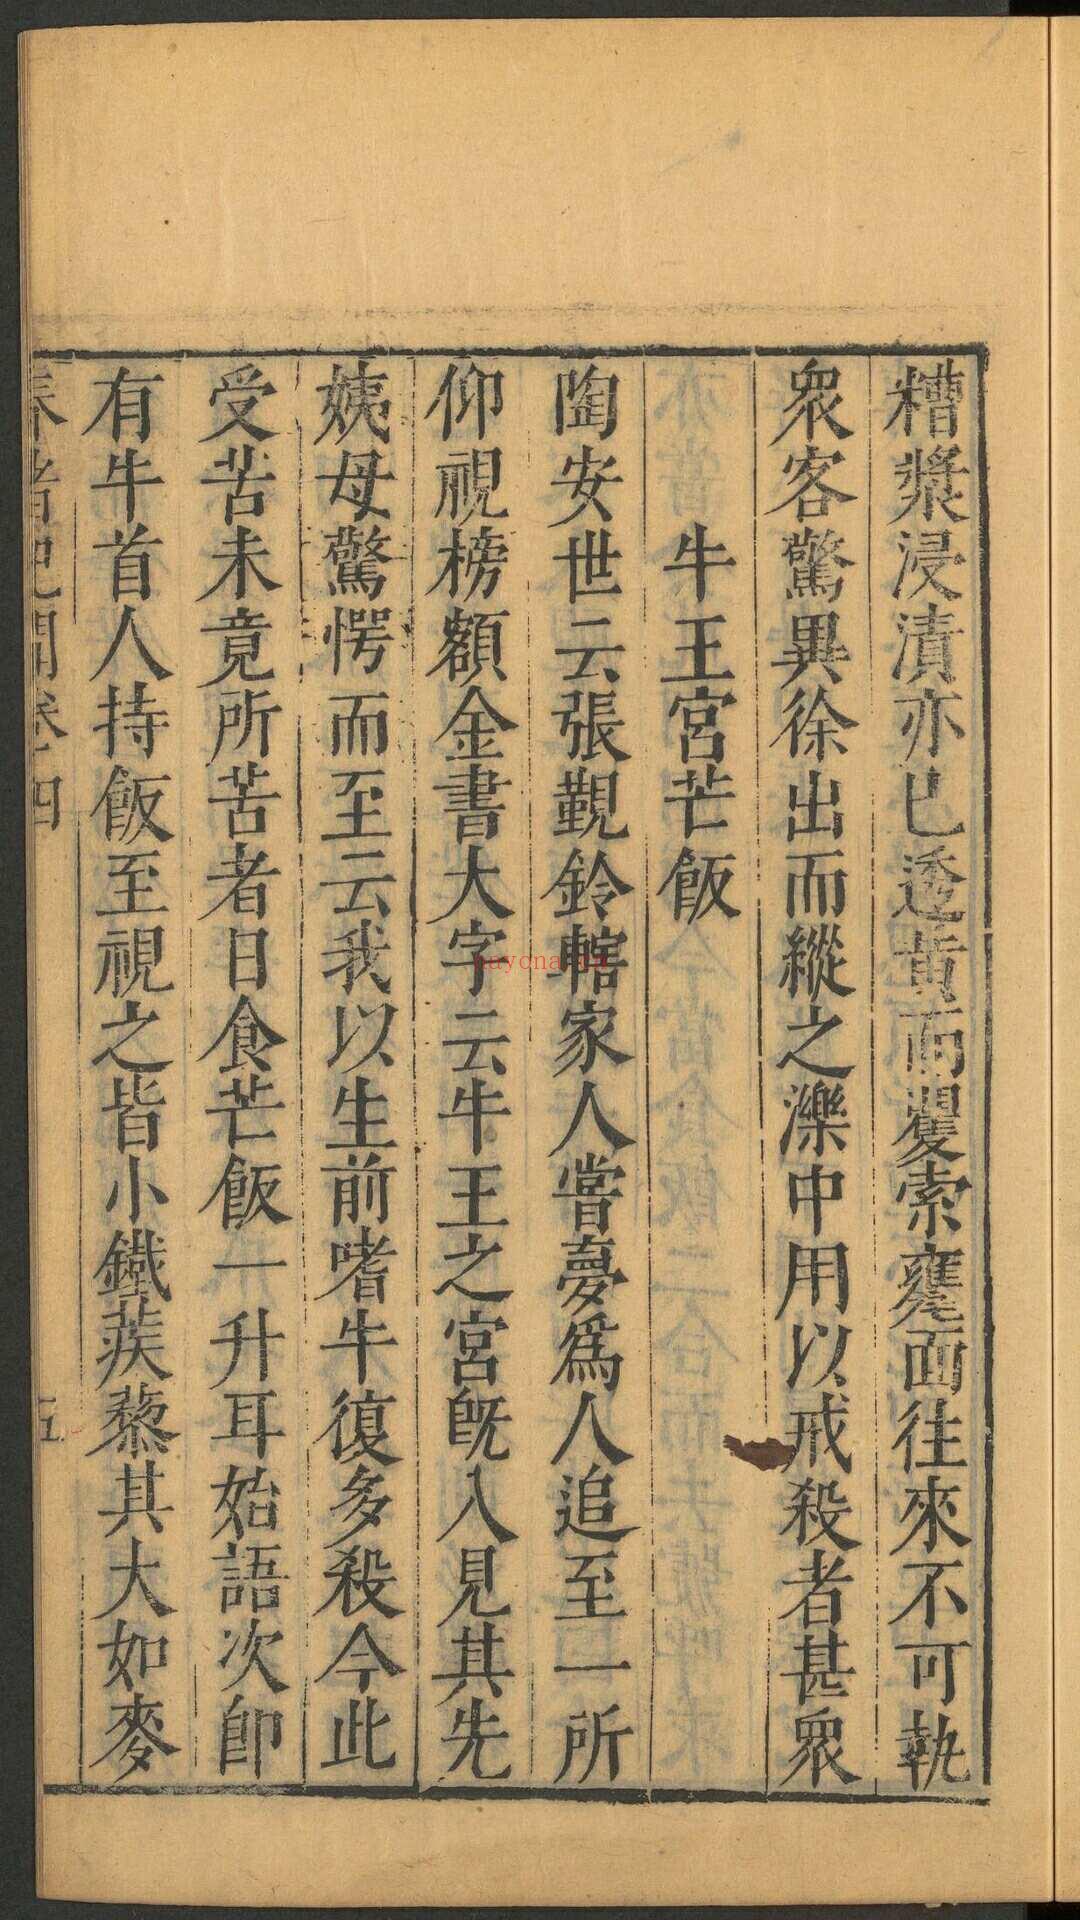 糟漿浸漬亦已透黃而矍索薨面往來不可執
衆客驚異徐出而縱之濼中用以戒殺者甚衆
牛王宮芒飯
陶安世云張覲鈴轄家人嘗夢爲人追至一所
仰視榜額金書大字云牛王之宮旣入見其先
姨母驚愕而至云我以生前嗜牛復多殺今此
受苦未竟所苦者日食芒飯一升耳始語次卽
有牛首人持飯至視之皆小鐵蒺藜其大如麥
春渚紀聞卷四
五